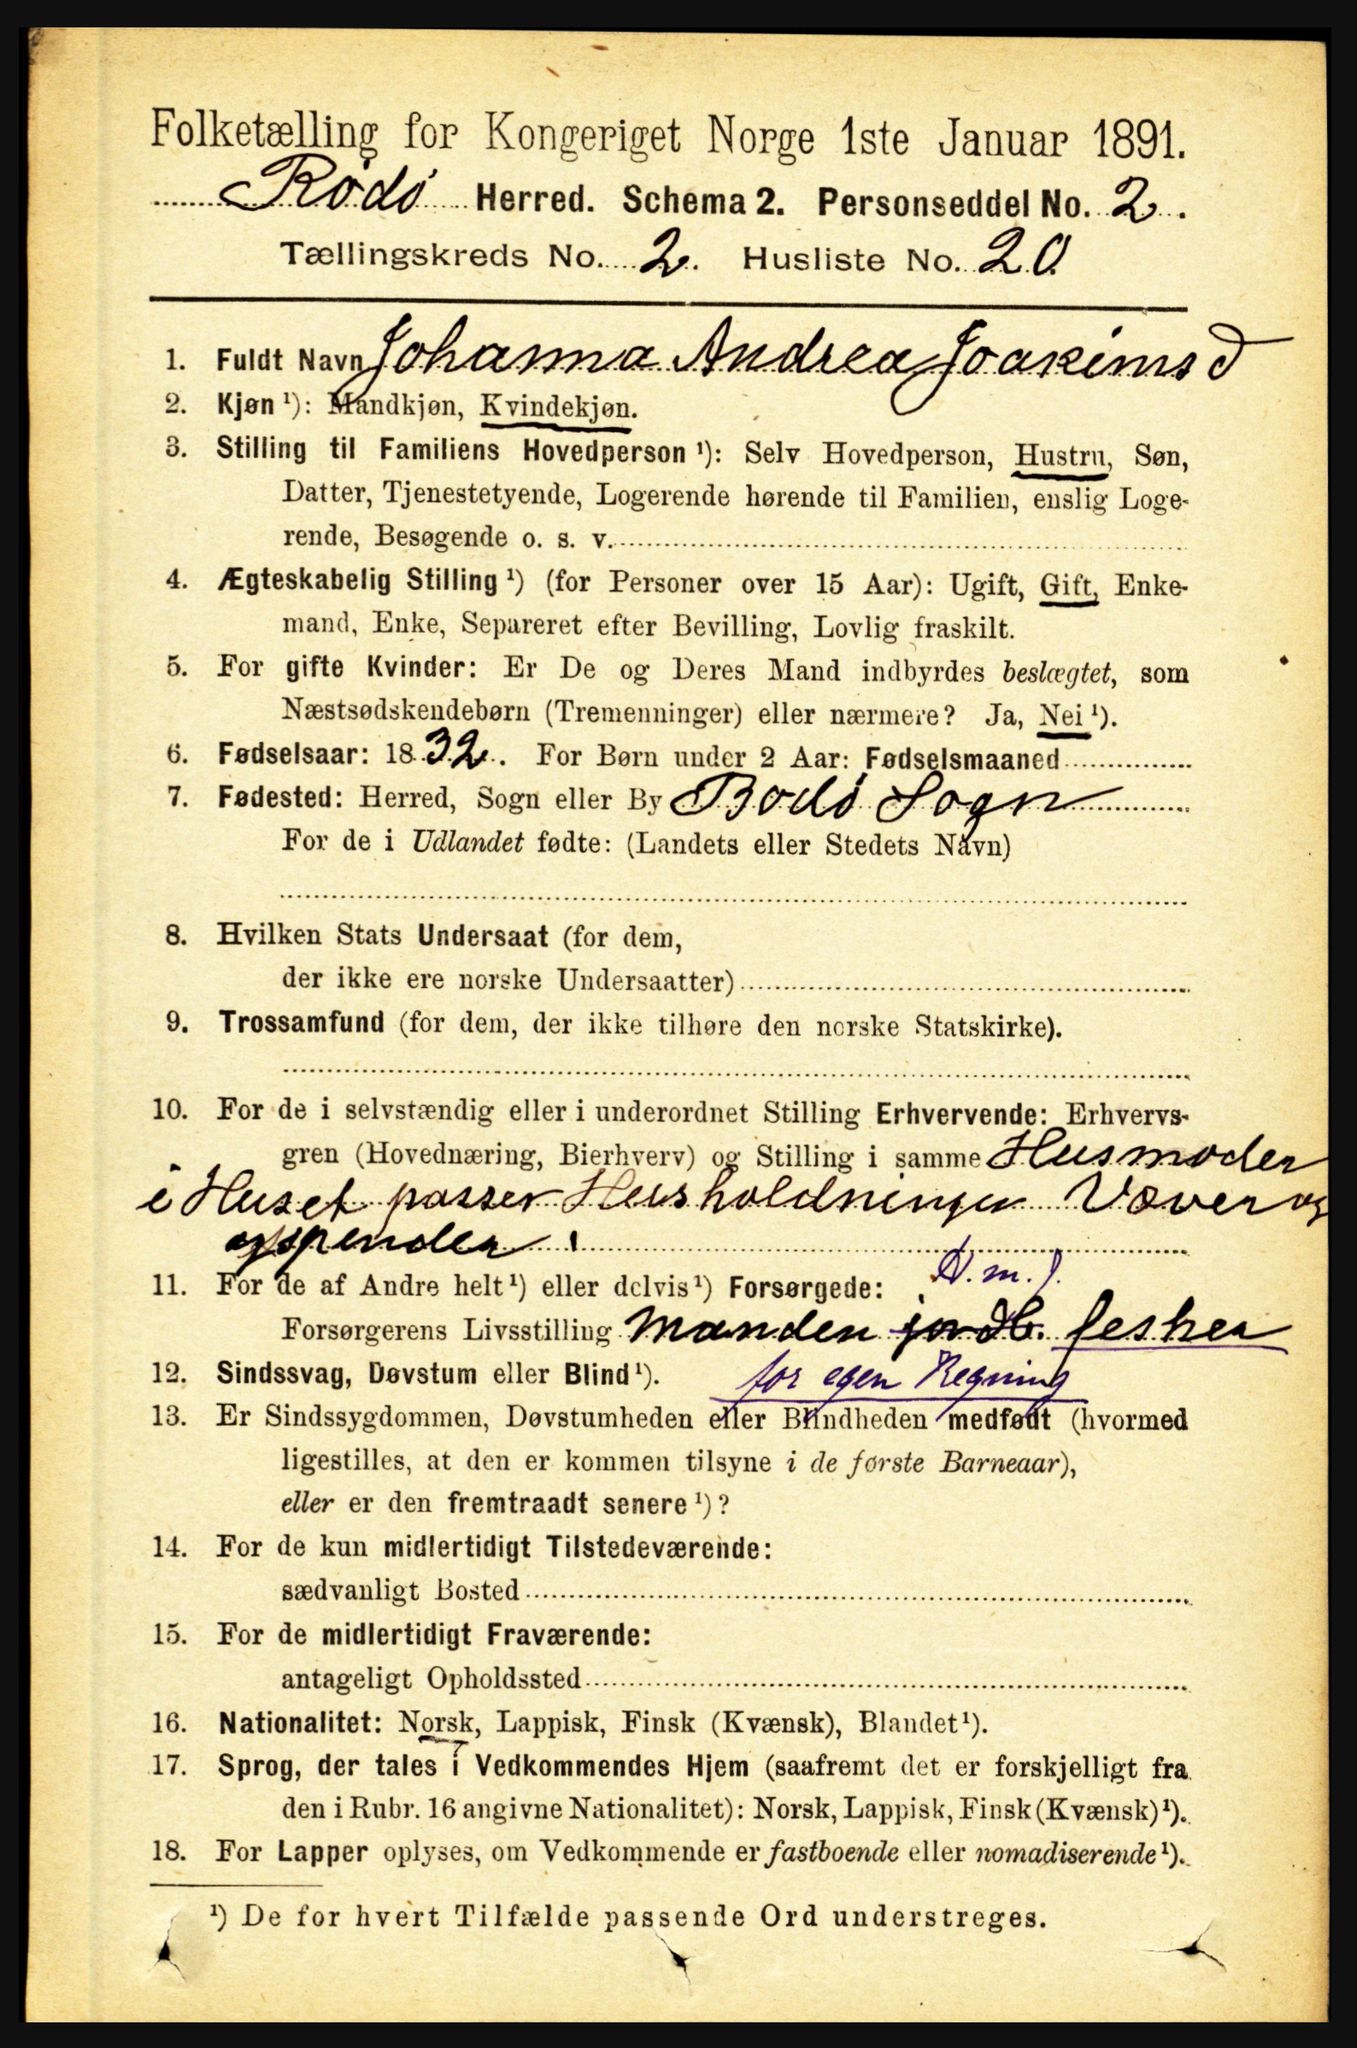 Folketælling for Kongeriget Norge 1ste Januar 1891.
Rödö Herred. Schema 2. Personseddel No. 2.
Tællingskreds No. 2. Husliste No. 20
1. Fuldt Navn Johanna Andrea Joakimsd
2. Kjøn ¹): Mandkjøn, Kvindekjøn.
3. Stilling til Familiens Hovedperson ¹): Selv Hovedperson, Hustru, Søn,
Datter, Tjenestetyende, Logerende hørende til Familien, enslig Loge-
rende, Besøgende o. s. v.
4. Ægteskabelig Stilling ¹) (for Personer over 15 Aar): Ugift, Gift, Enke-
mand, Enke, Separeret efter Bevilling, Lovlig fraskilt.
5. For gifte Kvinder: Er De og Deres Mand indbyrdes beslægtet, som
Næstsødskendebørn (Tremenninger) eller nærmere? Ja, Nei ¹).
6. Fødselsaar: 1832. For Børn under 2 Aar: Fødselsmaaned
7. Fødested: Herred, Sogn eller By Bodö Sogn
For de i Udlandet fødte: (Landets eller Stedets Navn)
8. Hvilken Stats Undersaat (for dem,
der ikke ere norske Undersaatter)
9. Trossamfund (for dem, der ikke tilhøre den norske Statskirke).
10. For de i selvstændig eller i underordnet Stilling Erhvervende: Erhvervs-
gren (Hovednæring, Bierhverv) og Stilling i samme Husmoder
i Huset passer Husholdningen Væver og
og spinder
11. For de af Andre helt ¹) eller delvis ¹) Forsørgede: H. m. J.
Forsørgerens Livsstilling Manden jordb. fesker
12. Sindssvag, Døvstum eller Blind ¹). for egen Regning
13. Er Sindssygdommen, Døvstumheden eller Blindheden medfødt (hvormed
ligestilles, at den er kommen tilsyne i de første Barneaar),
eller er den fremtraadt senere ¹)?
14. For de kun midlertidigt Tilstedeværende:
sædvanligt Bosted
15. For de midlertidigt Fraværende:
antageligt Opholdssted
16. Nationalitet: Norsk, Lappisk, Finsk (Kvænsk), Blandet ¹).
17. Sprog, der tales i Vedkommendes Hjem (saafremt det er forskjelligt fra
den i Rubr. 16 angivne Nationalitet): Norsk, Lappisk, Finsk (Kvænsk) ¹).
18. For Lapper oplyses, om Vedkommende er fastboende eller nomadiserende ¹).
¹) De for hvert Tilfælde passende Ord understreges.